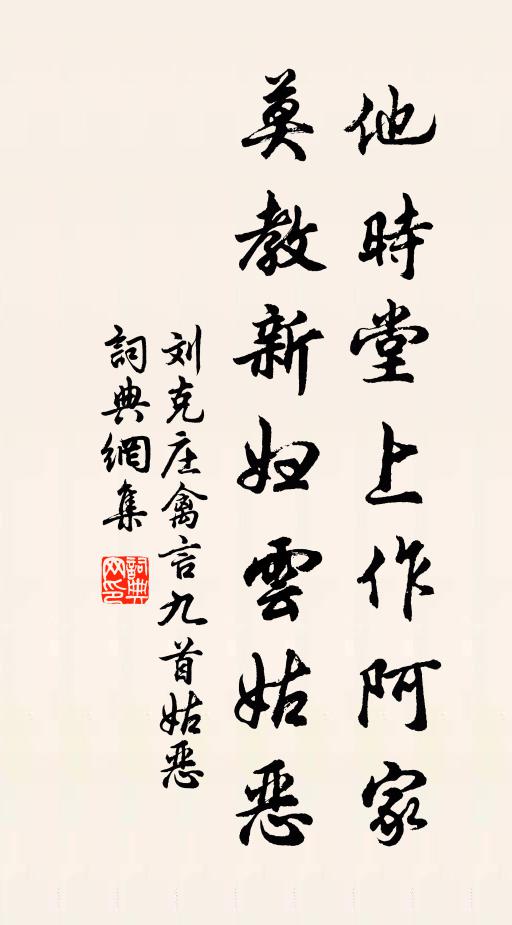 他時堂上作阿家
莫教新妇雲姑惡
刘克庄禽言九首姑恶
詞典網集
詞典网印